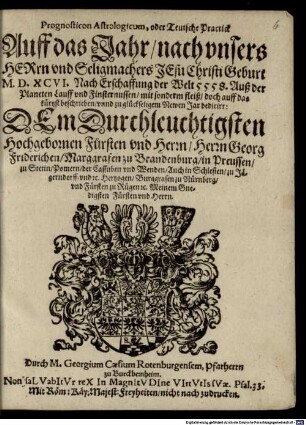 6
Prognosticon Astrologicum, oder Teutsche Practick
Auff das Jahr/ nach vnsers
HERrn vnd Seligmachers JEsu Christi Geburt
M. D. XCVI. Nach Erschaffung der Welt 5558. Auß der
Planeten Lauff vnd Finsternussen/ mit sondern fleiß/ doch auff das
kürtzt beschrieben/ vnnd zu glückseligem Newen Jar dedicirt:
DEm Durchleuchtigsten
Hochgebornen Fürsten vnd Herrn/ Herrn Georg
Friderichen/ Marggrafen zu Brandenburg/ in Preussen/
zu Stetin/ Pomern/ der Cassuben vnd Wenden/ Auch in Schlesien/ zu Jä-
gerndorff vnd ec. Hertzogen/ Burggrafen zu Nürmberg/
vnd Fürsten zu Rügen ec. Meinem Gne-
digsten Fürsten vnd Herrn.
Durch M. Georgium Cæsium Rotenburgensem, Pfarherrn
zu Burckbernheim.
Non saLVabItVr reX In MagnItVDIne VIrtVtIs sVæ. Psal. 33.
Mit Röm: Käy: Majest: Freyheiten/ nicht nach zudrucken.